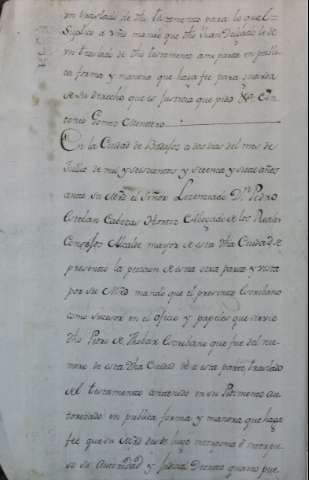 un traslado de dho testamento para lo que
Suplico a Vmd mande que dho Juan Delgado le de
un traslado de dho testamento a mi parte en publi
ca forma y manera que haga fee para guarda
de su derecho que es Justicia que pido Xa An
tonio Gomez Montero
En la Ciudad de Badajoz a dos dias del mes de
Jullio de mil y setecientos y setenta y siete años
ante su Mrd el Señor Lizenciado Dn Pedro
Esteban Cabezas Abogado de los Reales
Consejos Alcalde mayor de esta dha Ciudad se
presento la peticion de esta otra parte y vista
por su Mrd mando que el presente Escribano
como subcesor en el oficio y papeles que sirvio
dho Pedro de Escribano que fue del nu
mero de esta dha Ciudad de a esta parte traslado
del testamento contenido en su Pedimento au
torizado en publica forma y manera que haga
fee que su Mrd desde luego interponia e interpu
so su Autoridad y Judicial Decreto quanto pue